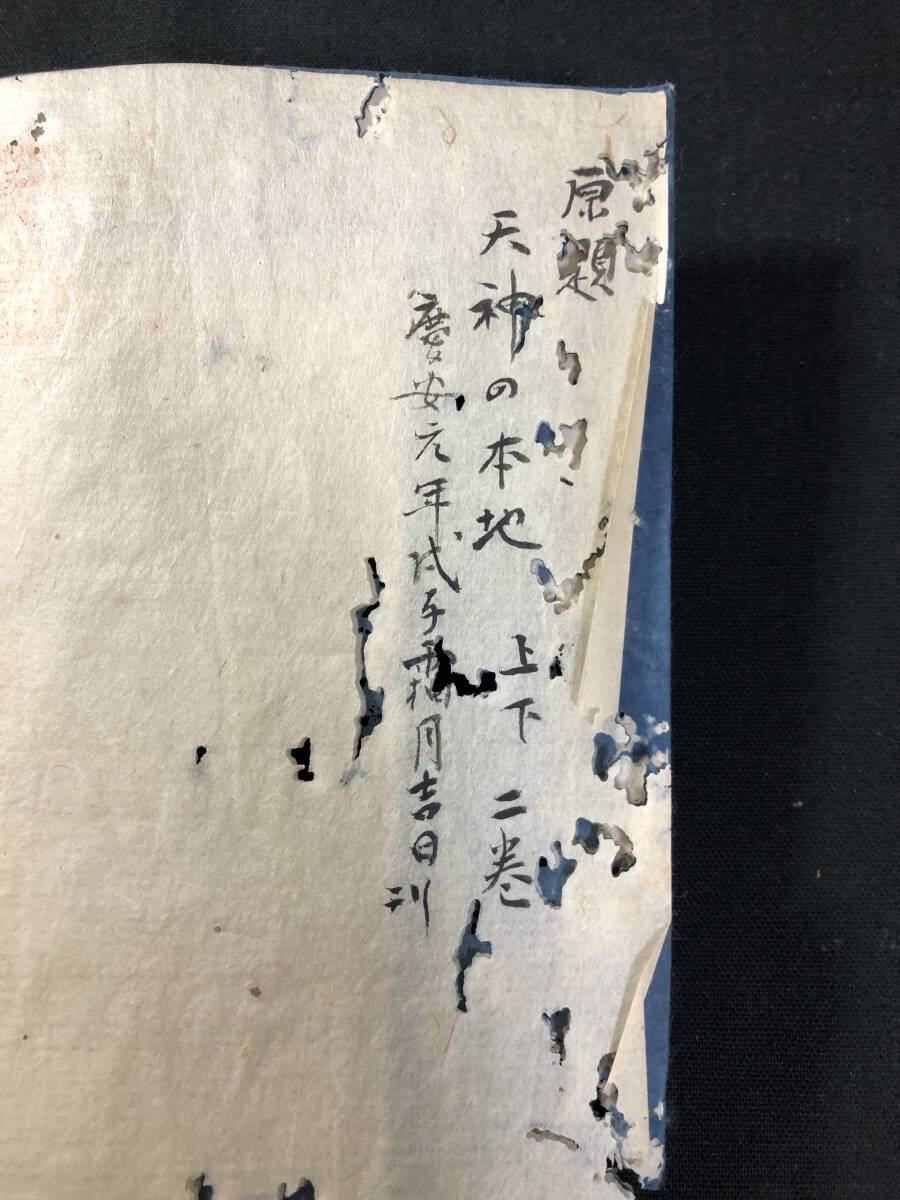 原題
天神の本地 上下 二巻
慶安元年戊子霜月吉日刊